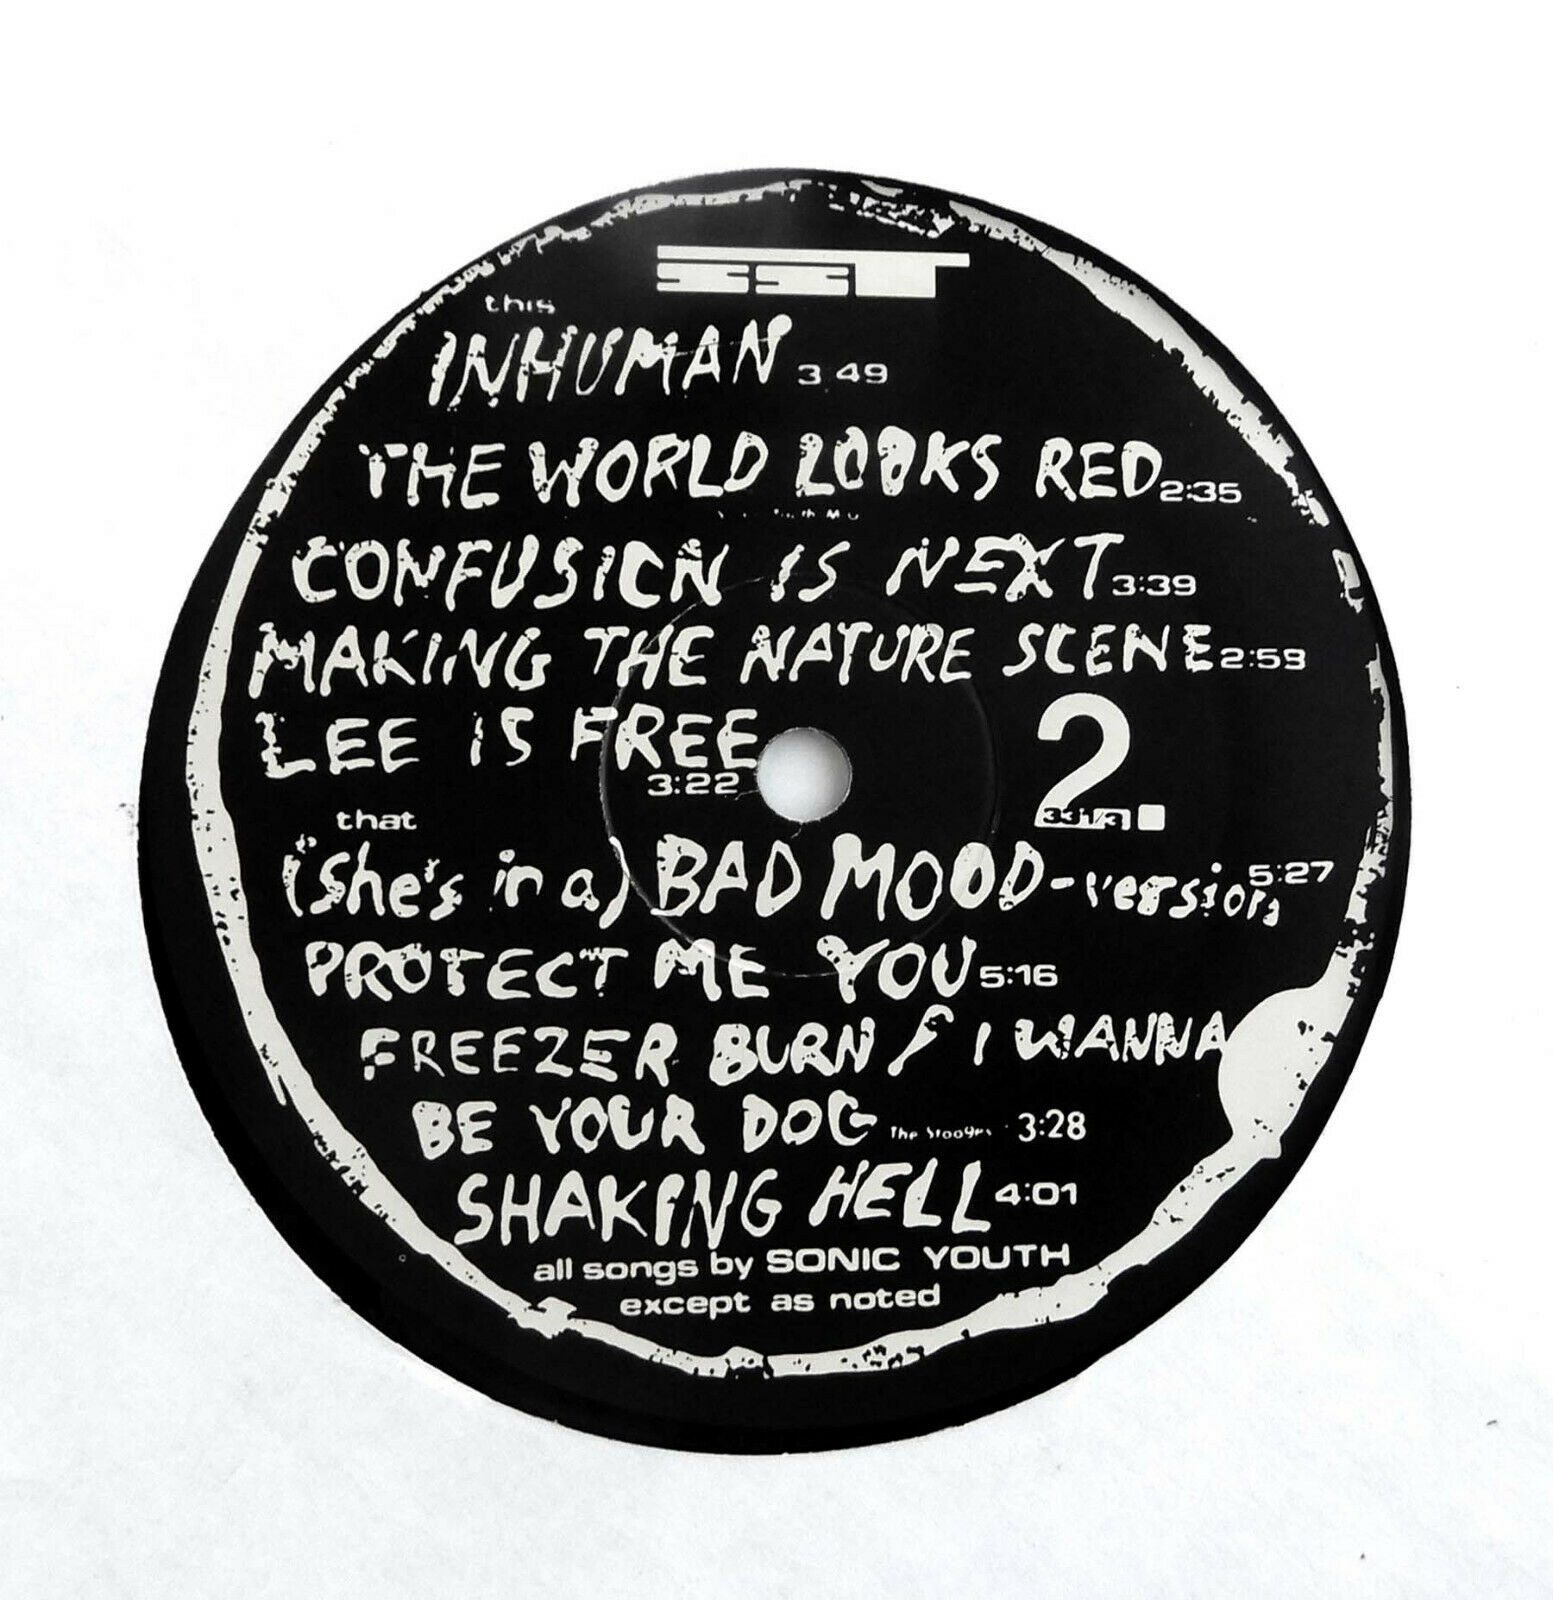 SST
this
INHUMAN 3 49
THE WORLD LOOKS RED 2:35
CONFUSION IS NEXT 3:39
MAKING THE NATURE SCENE 2:59
LEE IS FREE
3:22
2.
33 1/3
that
(she's in a) BAD MOOD - version 5:27
PROTECT ME YOU 5:16
FREEZER BURN / I WANNA
BE YOUR DOG The Stooges 3:28
SHAKING HELL 4:01
all songs by SONIC YOUTH
except as noted